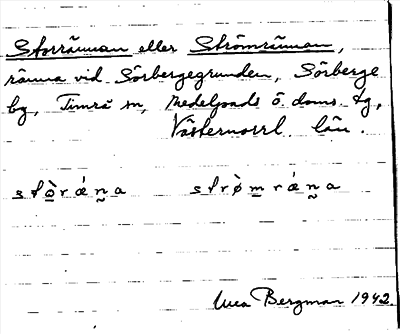 Storrännan eller Strömrännan,
ränna vid Sörbergegrunden, Sörberge
by, Timrå sn, Medelpads ö. doms. tg,
Västernorrl. län.
stò̱ráṉa strø̀m̱ráṉa
Bergman 1942.